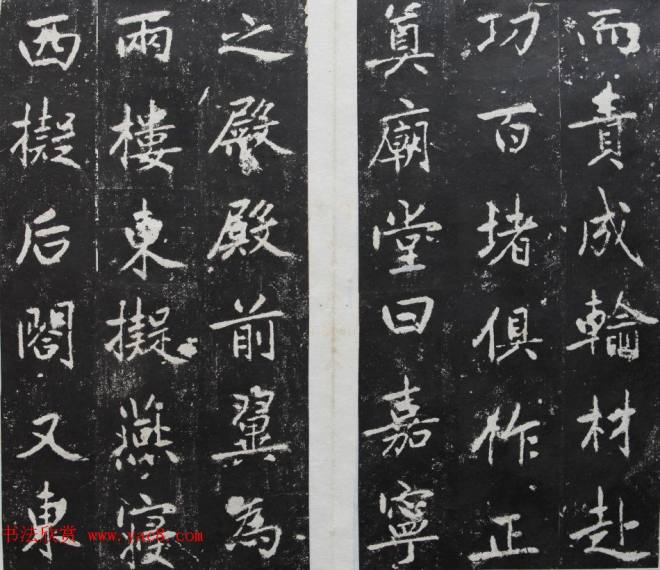 而責成輪材赴
功百堵俱作正
奠廟堂曰嘉寧
之殿殿前翼為
兩樓東擬燕寢
西擬后閤又東
书法欣赏 www.yac8.com